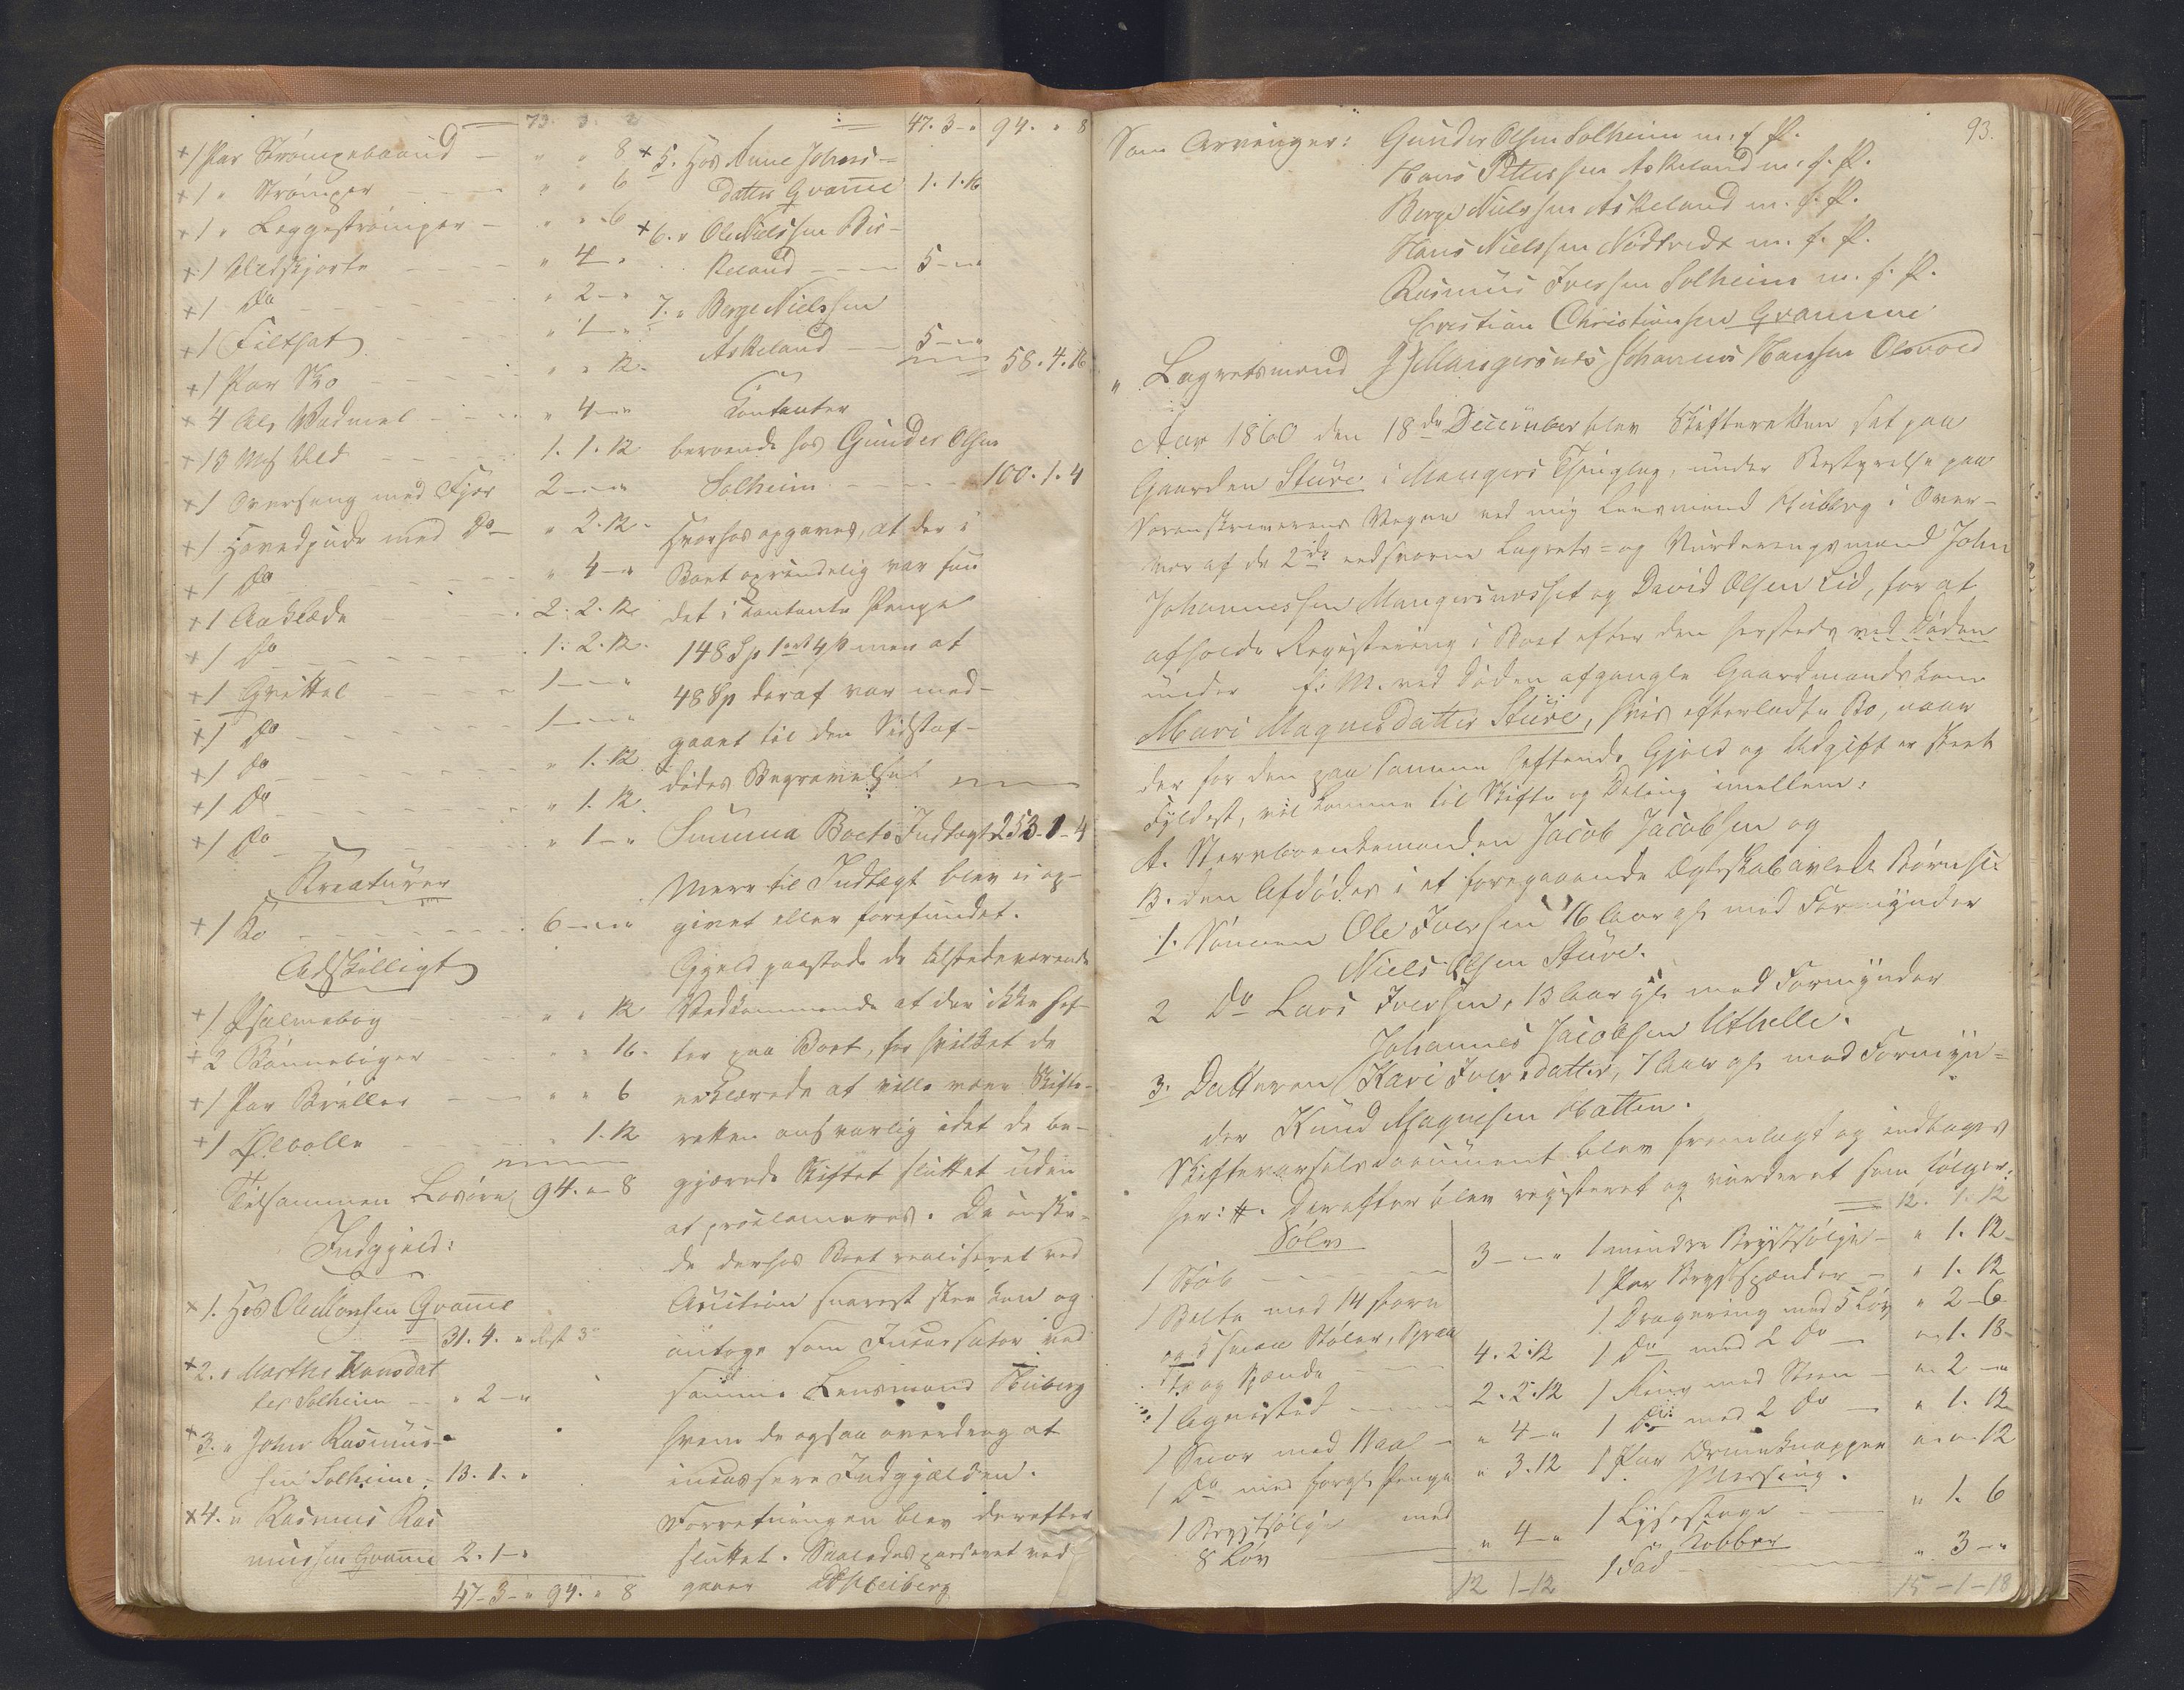 73. 3. 2
+1 Par Strømpebaand — " " 8
+1 " Strømper — " " 6
+1 " Leggestrømper — " " 6
+1 Uldskjorte " 4 — "
+1 Do " 2 — "
+1 Filthat " 1 — "
+1 Par Sko " " 12
+4 Al. Vadmel " 4 — "
+13 Mk Uld 1. 1. 12
+1 Overseng med Fjær 2 — "
+1 Hovedpude med Do — " 2. 12
+1 Do " 4 — "
+1 Aaklæde 2. 2. 12
+1 Do 1. 2. 12
+1 Grittel 1 — "
+1 Do 1 — "
+1 Do " 1. 12
+1 Do " 1. 12
+1 Do " 1 — "
Kreaturer
+1 Ko 6 — "
Adskilligt
+1 Psalmebog " " 12
+2 Bønnebøger " " 16
+1 Par Briller " " 6
+1 Ølbolle " 1. 12
Tilsammen Løsøre 94. " 8
Indgjæld:
+1. Hos Ole Monsen Gramme
31. 4. "
+2. " Marthe Hansdat
ter Solheim — " 2 — "
+3. " John Rasmus-
sen Solheim — 13. 1. "
+4. " Rasmus Ras
mussen Gramme 2. 1 — "
47 — 3 — " 94. " 8
47. 3 — " 94. " 8
+5. Hos Anne Johns-
datter Gramme 1. 1. 16
+6. " Ole Nielssen Bir-
keland — 5 — "
7. " Berge Nielssen
Askeland — 5 — "
58. 4. 16
Contanter
beroende hos Gunder Olsen
Solheim — 100. 1. 4
Hvorhos opgaves, at der i
Boet oprindelig var fun
det i contante Penge
148 Sp 1 ort 4 s men at
48 Sp deraf var med-
gaaet til den Sidstaf-
dødes Begravelse
Summa Boets Indtægt 253 — 1 — 4
Mere til Indtægt blev ei op-
givet eller forefundet.
Gjæld paastode de tilstedeværende
Vedkommende at der ikke hef-
ter paa Boet, for hvilket de
erklærede at ville være Skifte-
retten ansvarlig idet de be-
gjærede Skiftet sluttet uden
at proclameres. De ønske-
de derhos Boet realiseret ved
Auction snarest skee kan og
antoge som Incassator ved
samme Lensmand Heiberg
hvem de ogsaa overdrog at
incassere Indgjælden.
Forretningen blev derefter
sluttet. Saaledes passeret ved-
gaaes Heiberg
93.
Som Arvinger: Gunder Olsen Solheim m. f. P.
Hans Pettersen Askeland m. f. P.
Berge Nielssen Askeland m. f. P.
Hans Nielssen Nødtvedt m. f. P.
Rasmus Iversen Solheim m. f. P.
Christian Christiansen Gramme
" Lagretsmænd J J Mangersnes Johannes Hansen Olsvold
Aar 1860 den 18de December blev Skifteretten sat paa
Gaarden Sture i Mangers Thinglag, under Bestyrelse paa
Sorenskriverens Vegne ved mig Lensmand Heiberg i Over-
vær af de 2de eedsvorne Lagrets- og Vurderingsmænd John
Johannessen Mangersnæsset og David Olsen Lid, for at
afholde Registrering i Boet efter den hersteds ved Døden
under f. M. ved Døden afgangne Gaardmandskone
Mari Magnesdatter Sture, hvis efterladte Bo, naar
der for den paa samme heftende Gjæld og Udgift er skeet
Fyldest, vil komme til Skifte og Deling imellem:
A. Sterboenkemanden Jacob Jacobsen og
B. den Afdødes i et foregaaende Ægteskab avlede Børn s:
1. Sønnen Ole Iversen 16 Aar gl. med Formynder
Niels Olsen Sture.
2 Do Lars Iversen, 13 Aar gl. med Formynder
Johannes Jacobsen Uthelle.
3. Datteren Kari Iversdatter, 7 Aar gl. med Formyn-
der Knud Magnesen Hatten.
Skiftevarselsdocument blev fremlagt og indtages
her: #. Derefter blev registreret og vurderet som følger:
Sølv
1 Støb — 3 — "
1 Belte med 14 store
og 5 smaa Støler,
og Spænde 4. 2. 12
1 Agnisted 2. 2. 12
1 Snor med Naal — " 4 — "
1 Do med forgl. Penge " 3. 12
1 Brystsølje med
8 Løv " 4 — "
12 1 — 12
12. 1. 12
1 mindre Brystsølje — " 1. 12
1 Par Brystspænder — " 1. 12
1 Dragering med 5 Løv " 2 — 6
1 Do med 2 Do — " 1. 18
1 Ring med Steen — " 2 — "
1 Do med 2 Do — " 1. 12
1 Par Ermeknapper " " 12
Messing.
1 Lysestage " 1. 6
Kobber
1 Fad " 3 — "
15 — 1 — 18